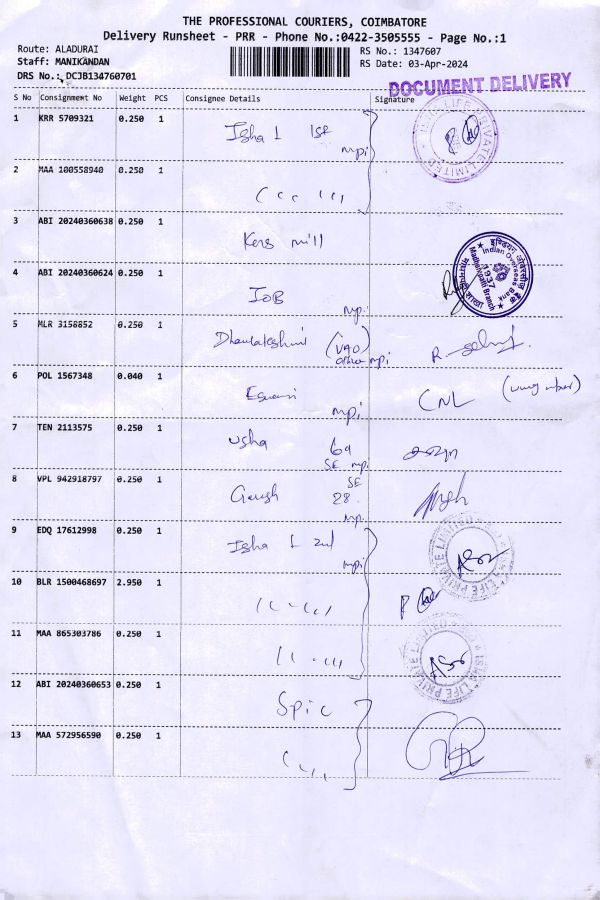 THE PROFESSIONAL COURIERS, COIMBATORE
Delivery Runsheet - PRR - Phone No.:0422-3505555 - Page No.:1
Route: ALADURAI
Staff: MANIKANDAN
DRS No.: DCJB134760701
RS No.: 1347607
RS Date: 03-Apr-2024
DOCUMENT DELIVERY
S No Consignment No Weight PCS Consignee Details Signature
1 KRR 5709321 0.250 1 Isha L 1st mpi
ISHA LIFE PRIVATE LIMITED
2 MAA 100558940 0.250 1
3 ABI 20240360638 0.250 1 Kens mill
4 ABI 20240360624 0.250 1 IOB mp.
इण्डियन ओवरसीज़ बैंक
Indian Overseas Bank
1937
5 MLR 3158852 0.250 1 (VAO) office mpi
6 POL 1567348 0.040 1 Eswari mpi CNL
7 TEN 2113575 0.250 1 Usha 69 SE mp.
8 VPL 942918797 0.250 1 SE 28. mp.
9 EDQ 17612998 0.250 1 Isha L 2nd mpi
ISHA LIFE PRIVATE LIMITED
10 BLR 1500468697 2.950 1
11 MAA 865303786 0.250 1
ISHA LIFE PRIVATE LIMITED
12 ABI 20240360653 0.250 1 Spic
13 MAA 572956590 0.250 1